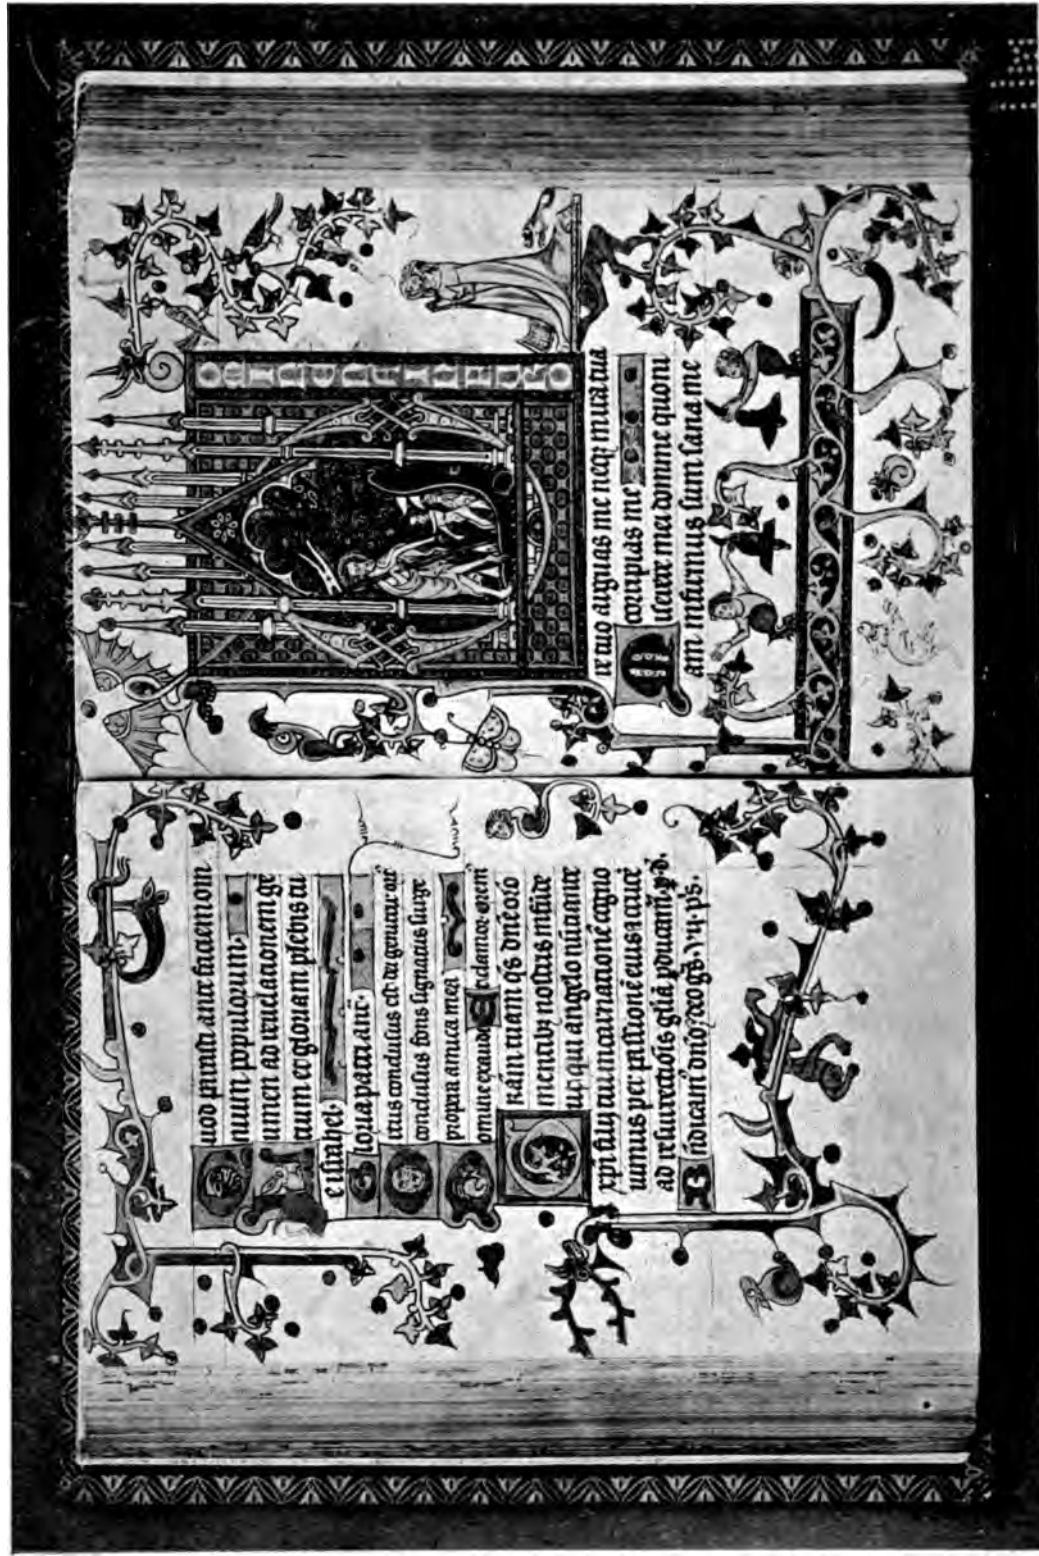 uod parasti ante faciem om
nium populorum.
umen ad reuelationem gē
tium et gloriam plebis tu
e israhel.
loria patri. añt.
rtus conclusus est dei genitrix ort
conclusus fons signatus surge
propera amica mea
omine exaudi. Et clamor. orem
Grām tuam q̄s dne
mentibꝫ nostris infūde
ut qui angelo nūciante
xp̄i filij tui incarnationē cogno
uimus per passionē eius ⁊ crucē
ad resurrectiōis gl̄iā pducam̄. p. d.
B̄ndicam̄ dn̄o. deo grās. vii. ps̄.
tuo arguas me neqꝫ in ira tua
corripias me
Miserere mei domine quoni
am infirmus sum sana me